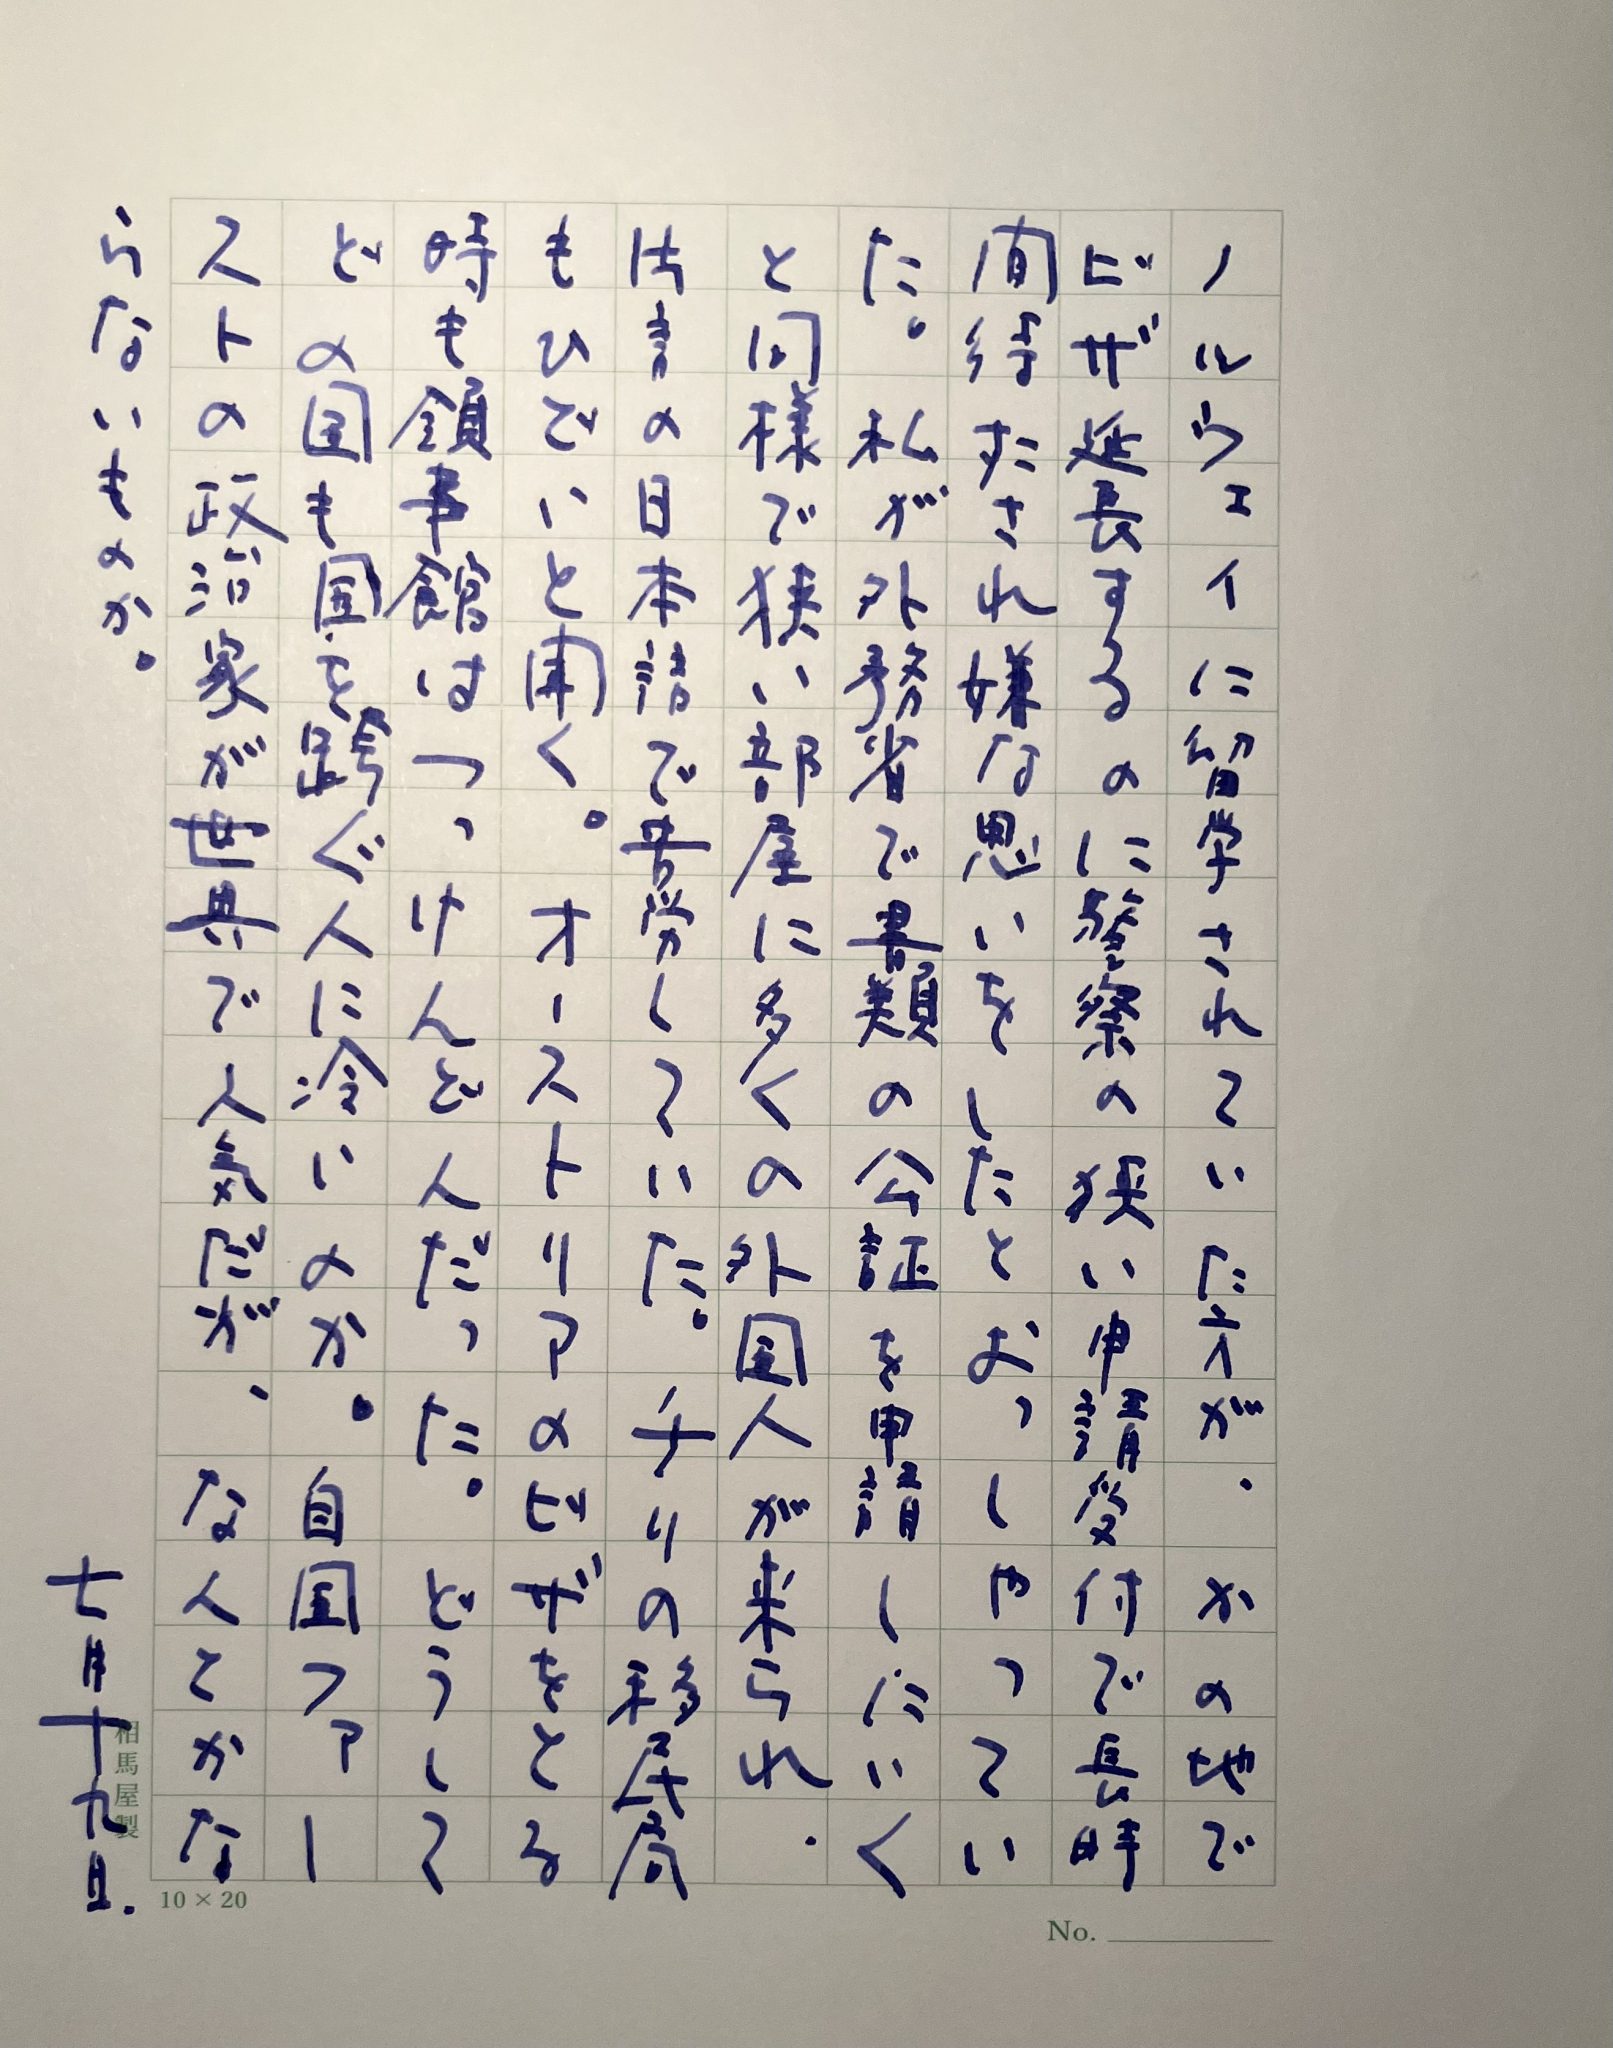 ノルウェイに留学されていた方が、かの地で
ビザ延長するのに警察の狭い申請受付で長時
間待たされ嫌な思いをしたとおっしやってい
た。私が外務省で書類の公証を申請しにいく
と同様で狭い部屋に多くの外国人が来られ、
片言の日本語で苦労していた。チリの移民局
もひどいと聞く。オーストリアのビザをとる
時も領事館はつっけんどんだった。どうして
どの国も国を跨ぐ人に冷いのか。自国ファー
ストの政治家が世界で人気だが、なんとかな
らないものか。
七月十九日.
相馬屋製
10×20
No.